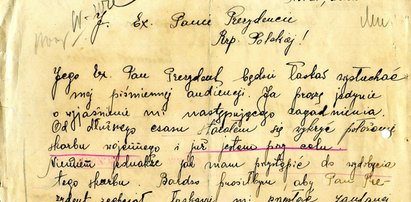 J. Ex. Panie Prezydencie
Rzp. Polskiej!
Jego Ex. Pan Prezydent, będzie łaskaw wysłuchać
mej piśmiennej audiencji. Ja proszę jedynie
o wyjaśnienie mi następnego zagadnienia.
Od dłuższego czasu starałem się wykryć położenie
skarbu wojennego i już jestem przy celu.
Niewiem jednakże jak mam przystąpić do wydobycia
tego skarbu. Bardzo prosiłbym aby Pan Pre-
zydent zechciał łaskawie mi przysłać